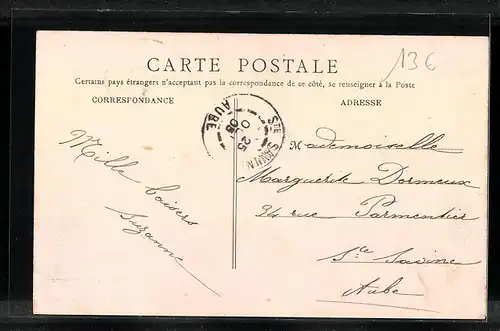 13€
CARTE POSTALE
Certains pays étrangers n'acceptant pas la correspondance de ce côté, se renseigner à la Poste
CORRESPONDANCE
ADRESSE
Mille baisers
Suzanne
AUBE
25
05
Mademoiselle
Marguerite Dormeux
34 rue Parmentier
Ste Savine
Aube